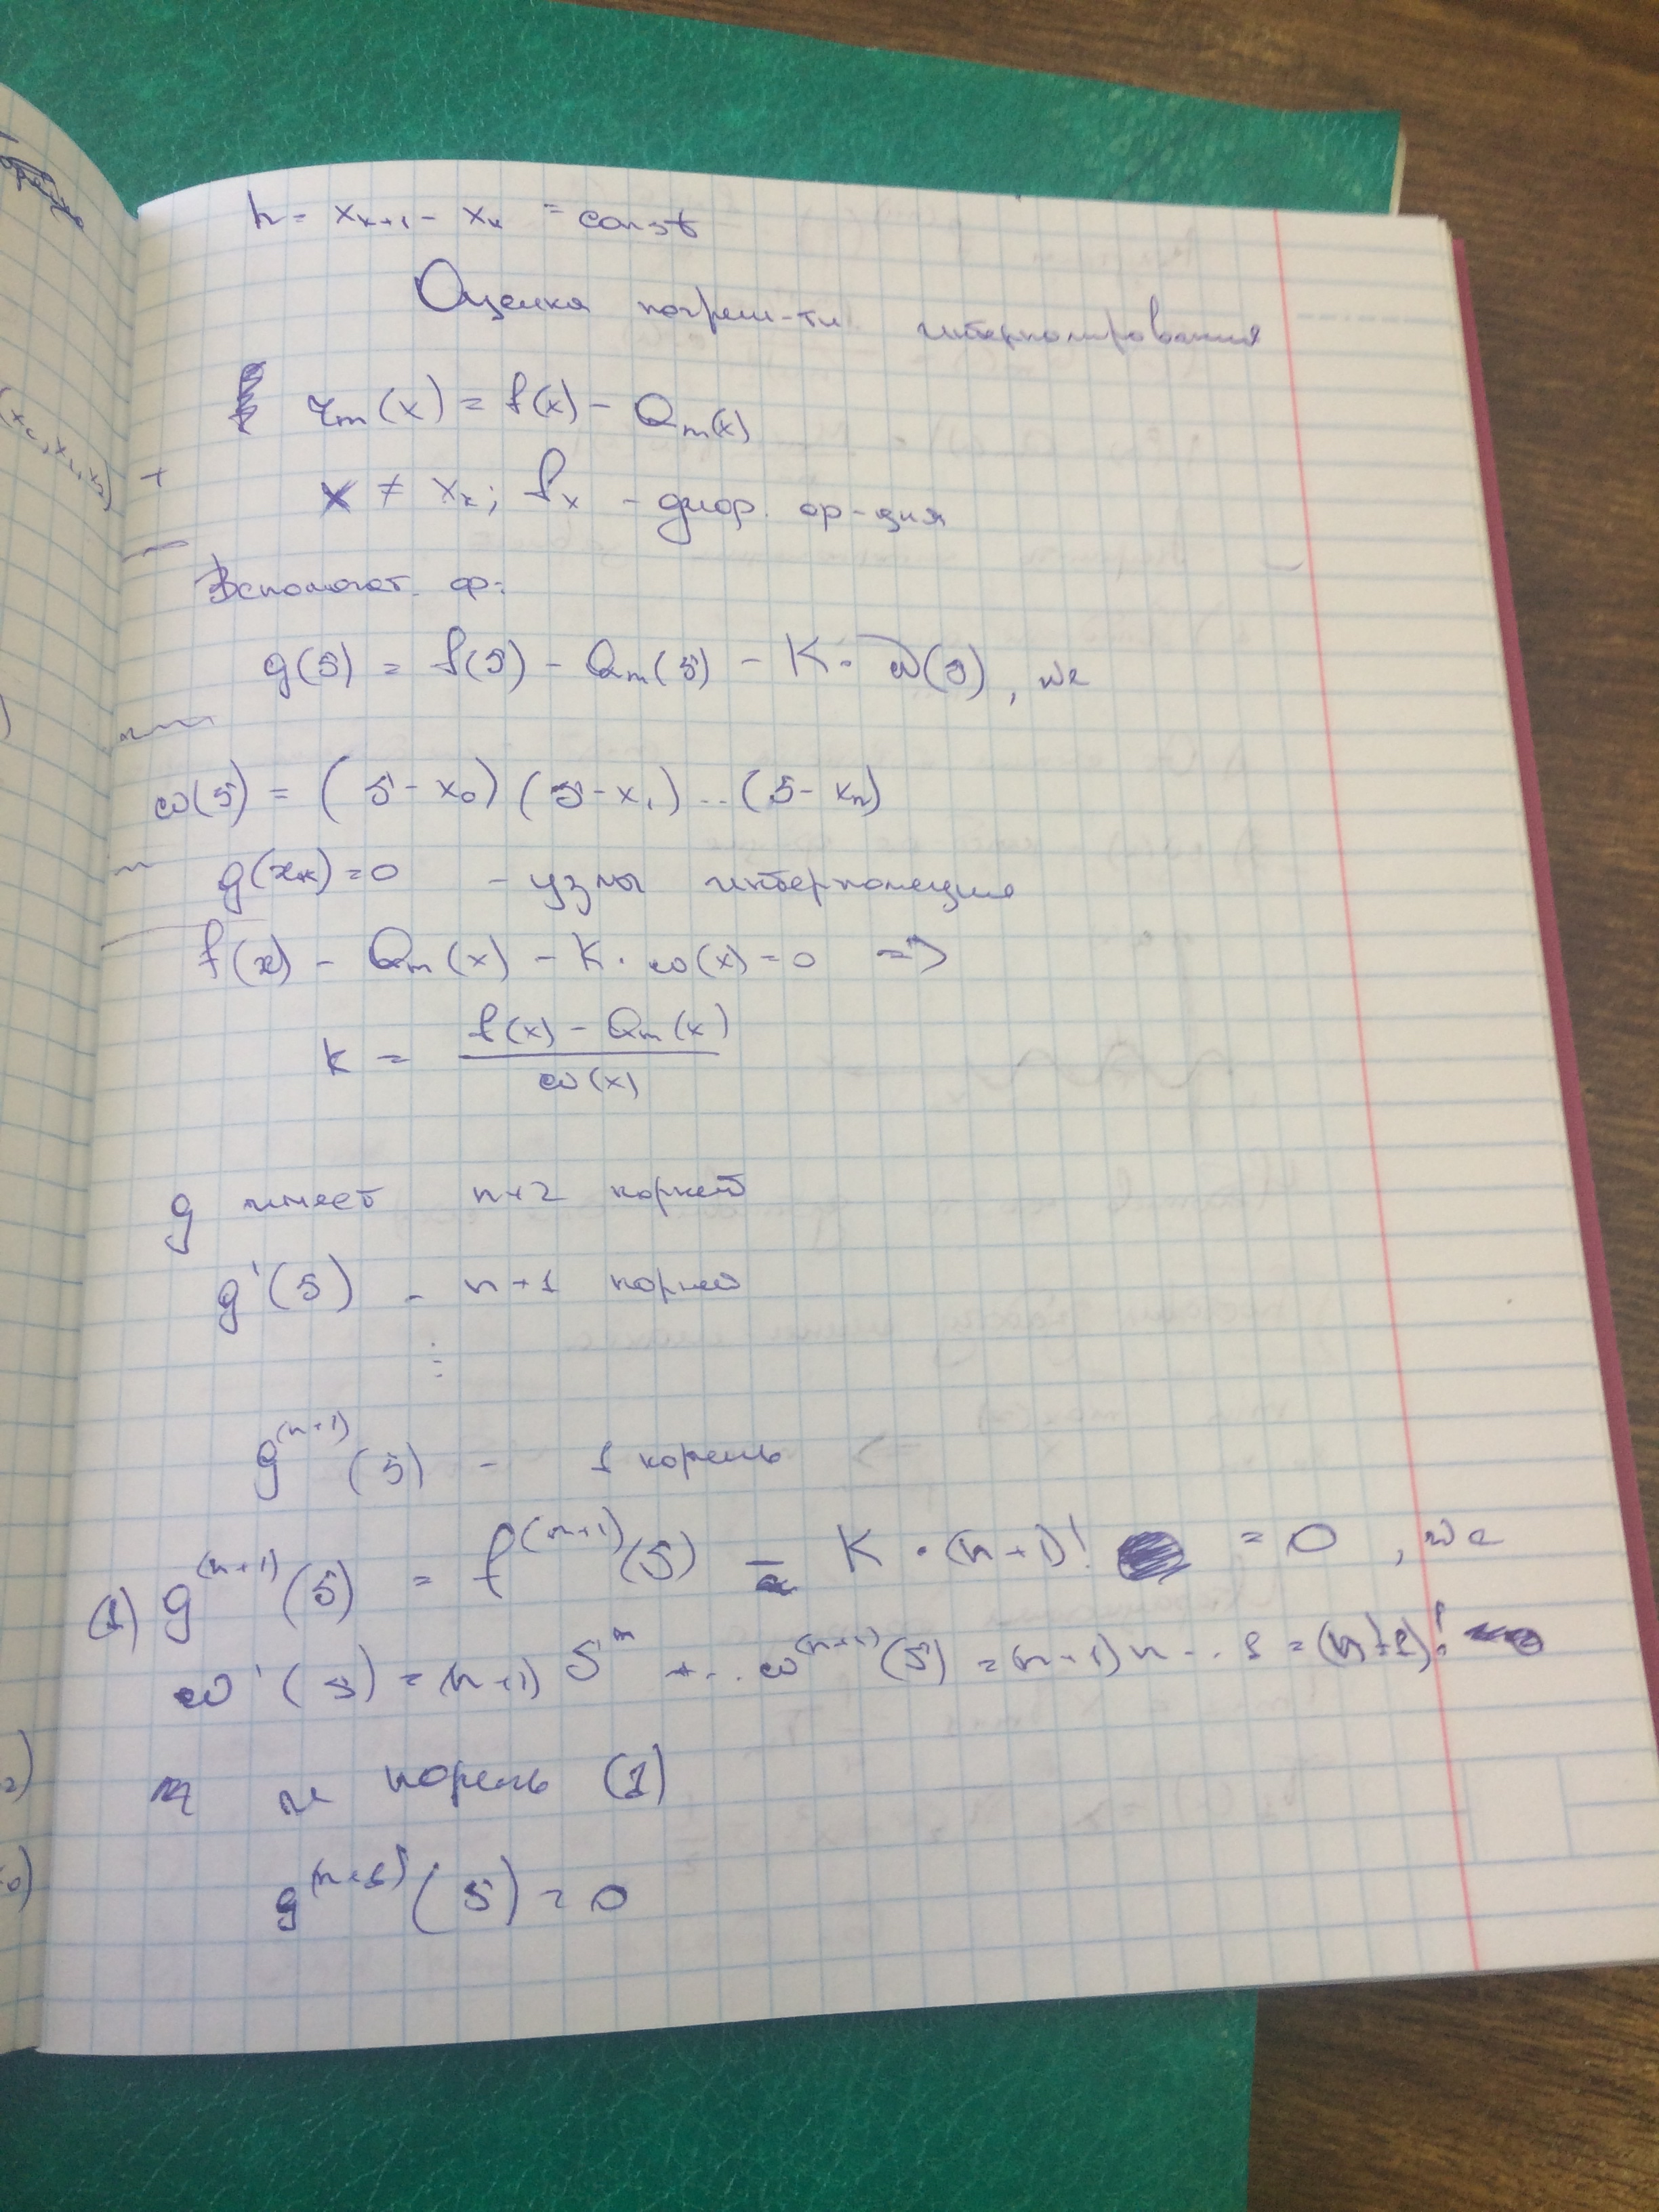 h = x_{k+1} - x_k = const
Оценка погреш-ти интерполирования
r_m(x) = f(x) - Q_m(x)
x ≠ x_k; f_x - диф. ф-ция
Вспомогат. ф:
g(5) = f(5) - Q_m(5) - K · ω(5), где
ω(5) = (5 - x_0)(5 - x_1)...(5 - x_n)
g(x_k) = 0 - узлы интерполяции
f(x) - Q_m(x) - K · ω(x) = 0 =>
K = (f(x) - Q_m(x)) / ω(x)
g имеет n+2 корней
g'(5) - n+1 корней
⋮
g^{(n+1)}(5) - 1 корень
(1) g^{(n+1)}(5) = f^{(n+1)}(5) - K · (n+1)! = 0, где
ω'(5) = (n+1) 5^n + ... ω^{(n+1)}(5) = (n+1)n...1 = (n+1)!
корень (1)
g^{(n+1)}(5) = 0